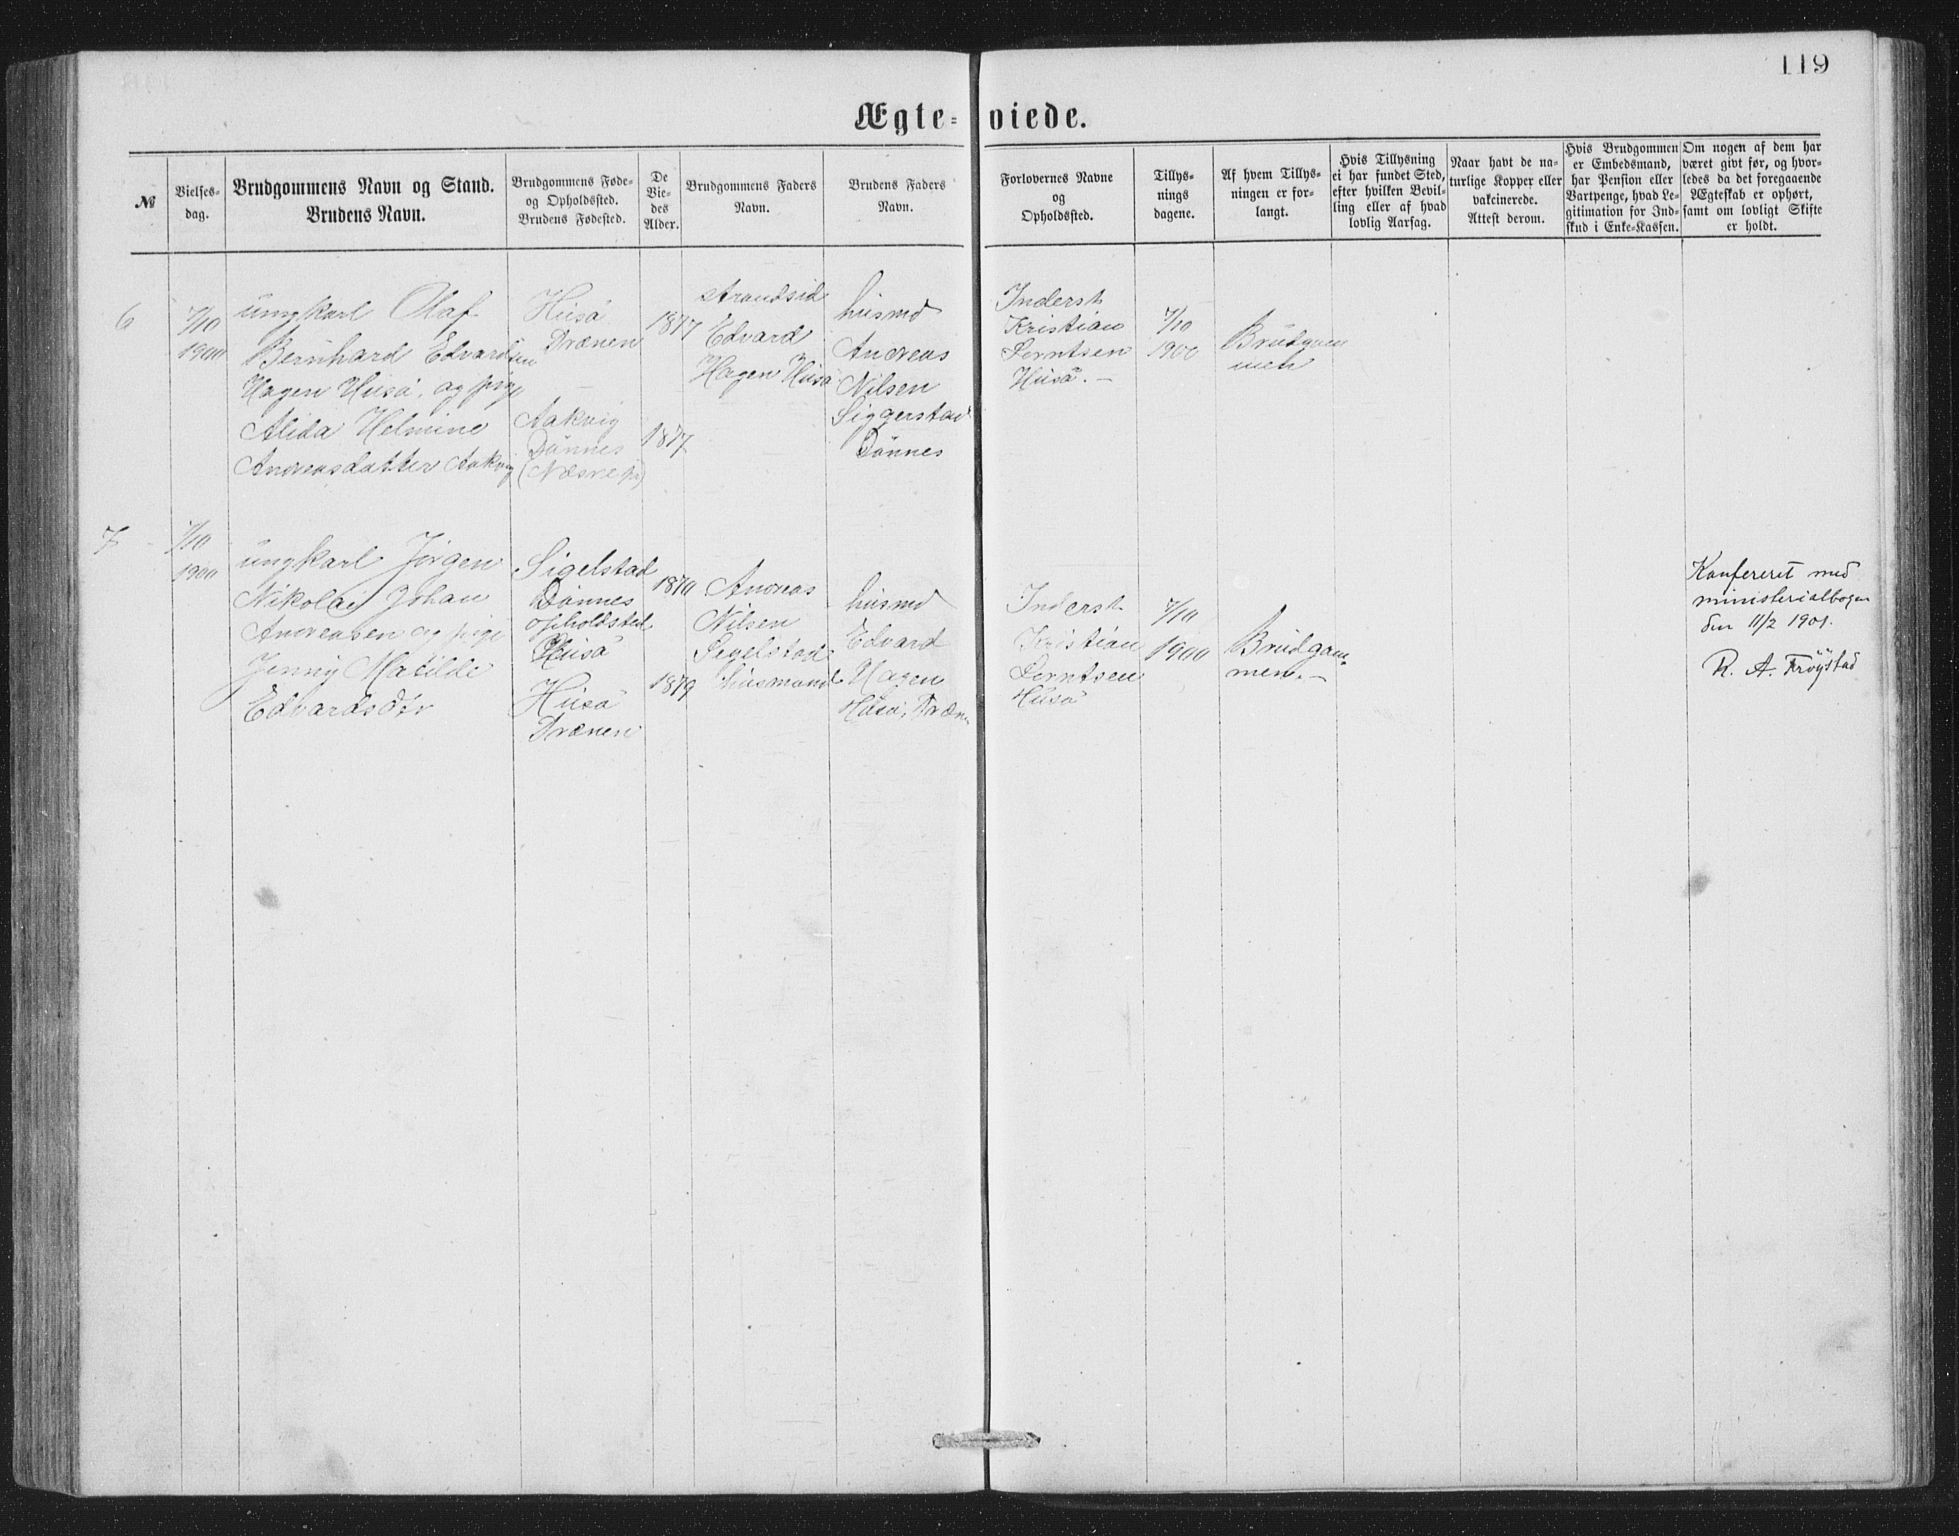 119
Ægte-viede.
№
Vielses-
dag.
Brudgommens Navn og Stand.
Brudens Navn.
Brudgommens Føde-
og Opholdssted.
Brudens Fødested.
De
Vie-
des
Alder.
Brudgommens Faders
Navn.
Brudens Faders
Navn.
Forlovernes Navne
og
Opholdssted.
Tillys-
nings
dagene.
Af hvem Tillys-
ningen er for-
langt.
Hvis Tillysning
ei har fundet Sted,
efter hvilken Bevil-
ling eller af hvad
lovlig Aarsag.
Naar havt de na-
turlige Kopper eller
vakcinerede.
Attest derom.
Hvis Brudgommen
er Embedsmand,
har Pension eller
Vartpenge, hvad Le-
gitimation for Ind-
skud i Enke-Kassen.
Om nogen af dem har
været givt før, og hvor-
ledes da det foregaaende
Ægteskab er ophørt,
samt om lovligt Skifte
er holdt.
6
7/10
1900
ungkarl Olaf
Bernhard Edvardsen
Hagen Husö, og pige
Alida Helmine
Andreasdatter Aakvig
Husö
Trænen
Aakvig
Dönnes
1877
1877
strandsid
Edvard
Hagen Husö
husmd
Andreas
Nilsen
Siggerstad
Dönnes
Inderst
Kristian
Lorntsen
Husö.
7/10
1900
Brudgom
men
7
7/10
1900
ungkarl Jörgen
Nikolai Johan
Andreasen og pige
Jenny Matilde
Edvardsdtr
Sigelstad
Dönnes
opholdsted
Husö
Husö
Trænen
1879
Andreas
Nilsen
Segelstad
husmand
husmd
Edvard
Hagen
Husö, Træn
Inderst
Kristian
Lorntsen
Husö
7/10
1900
Brudgom-
men.
Konfereret med
ministerialbogen
den 11/2 1901.
R. A. Fröystad